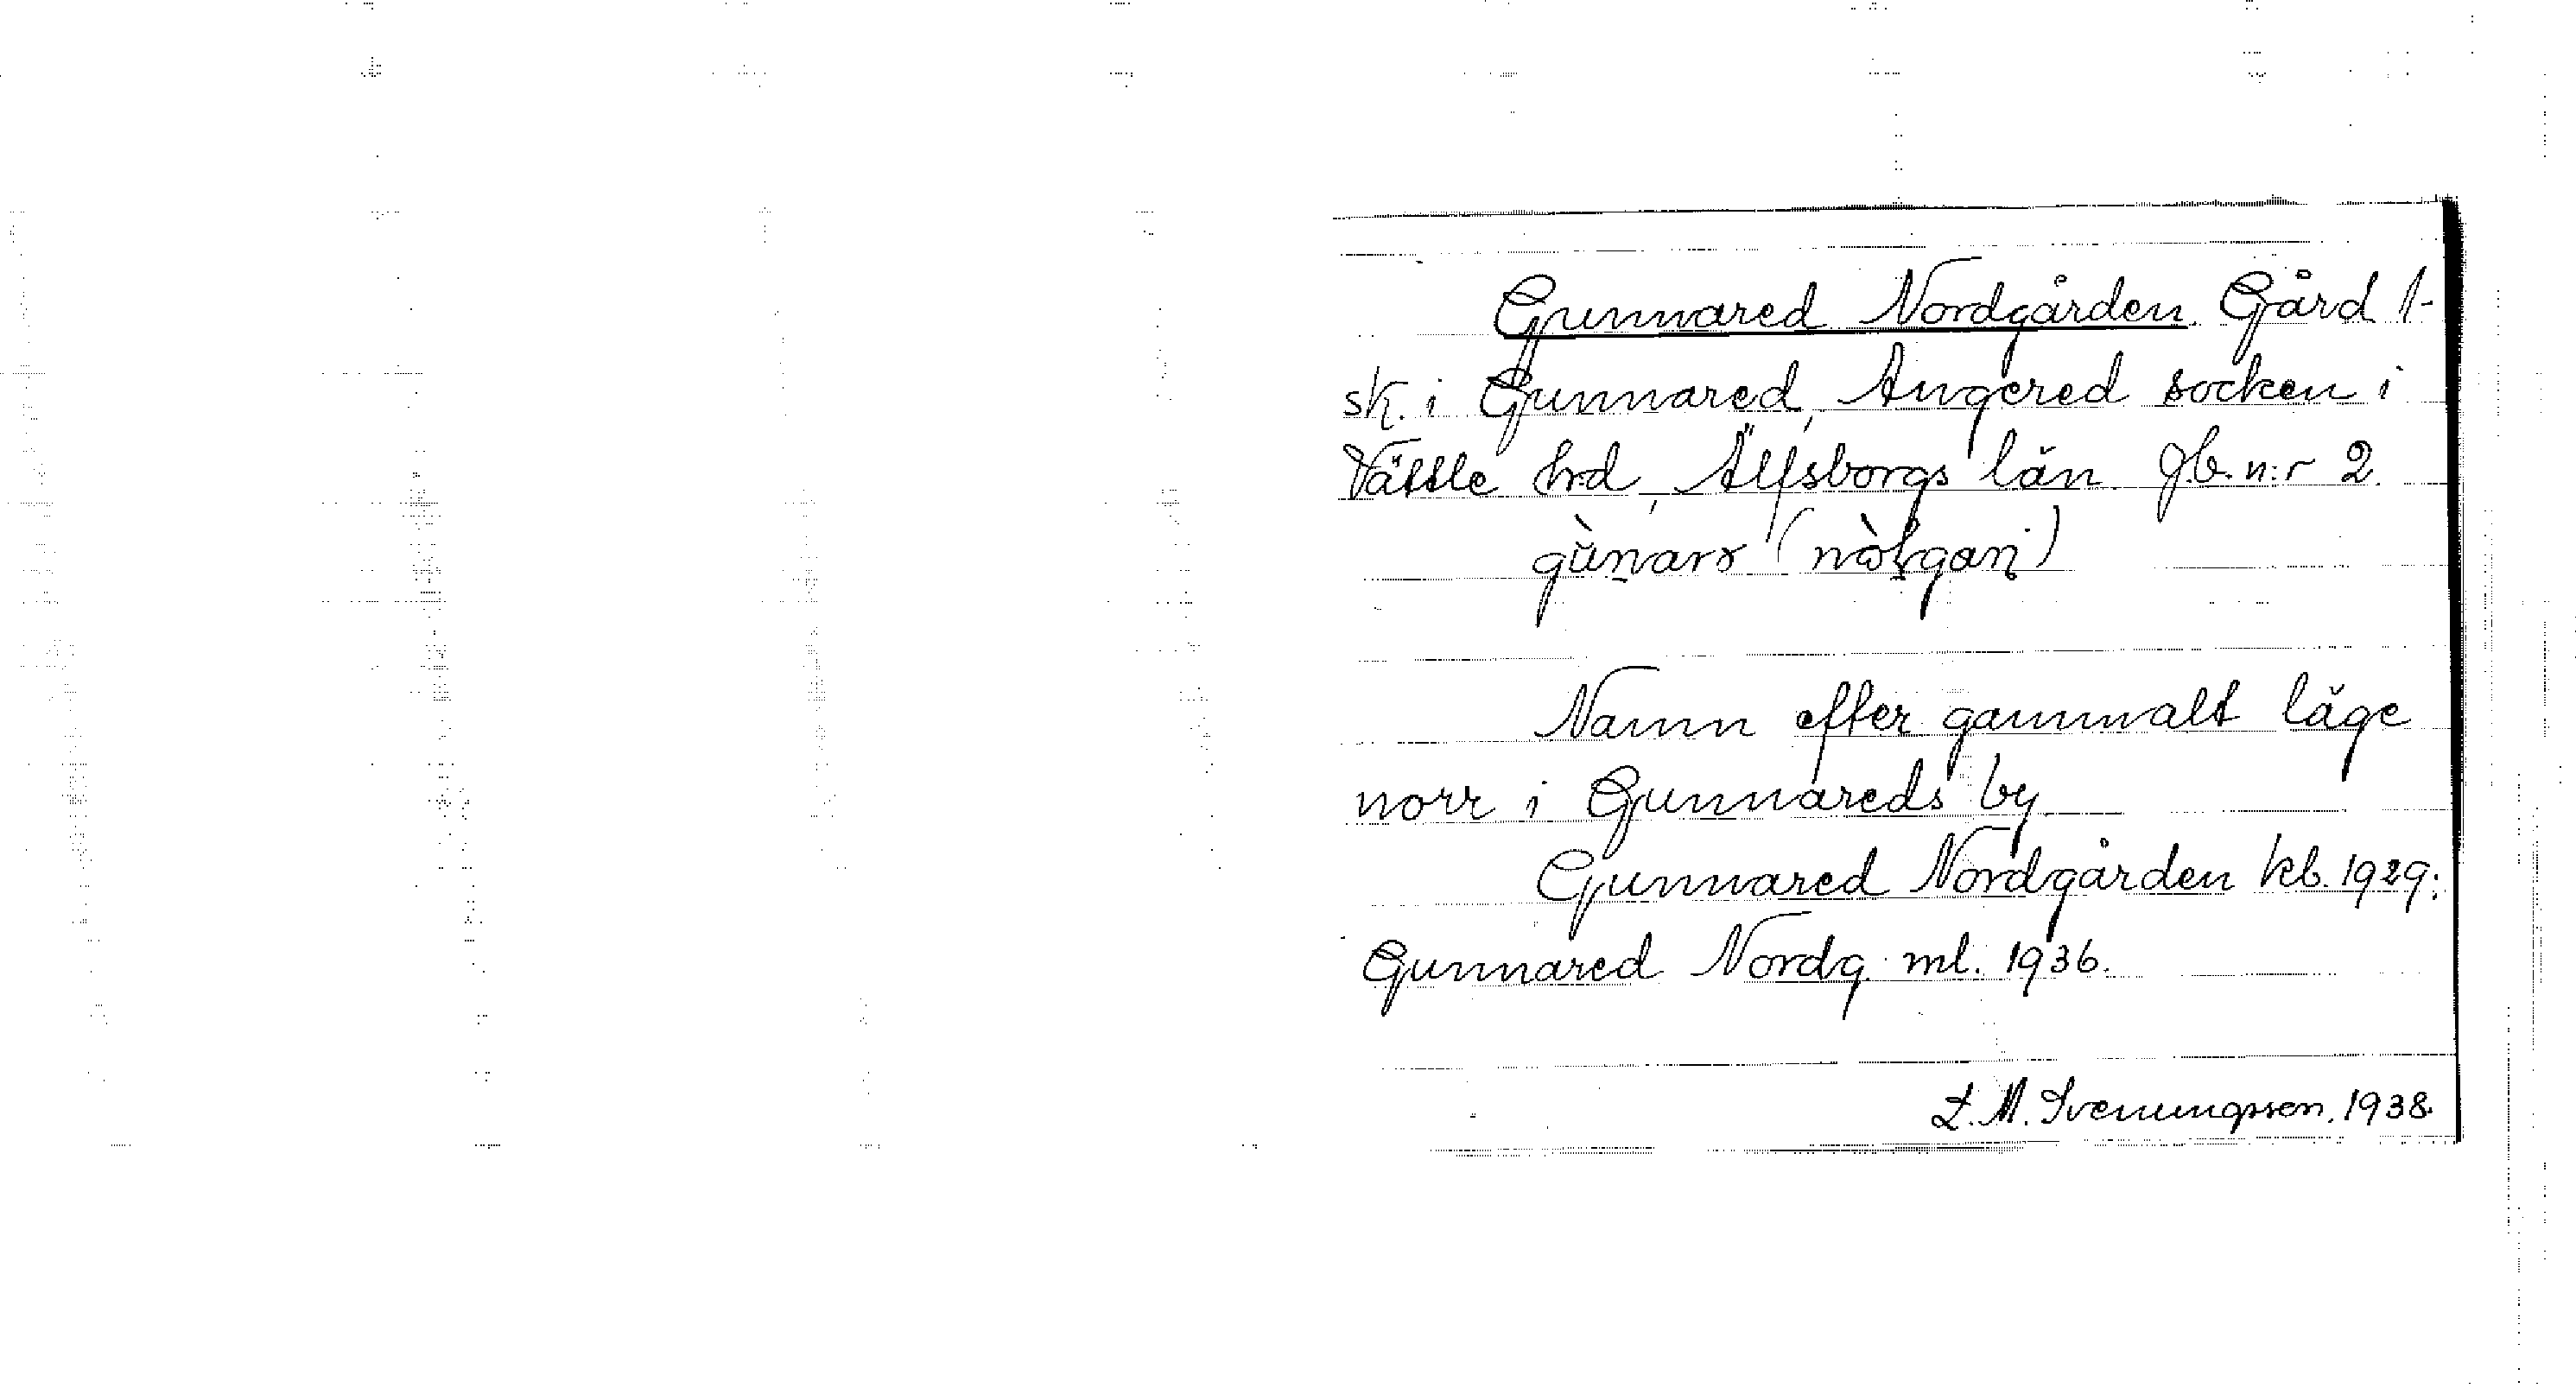 Gunnared Nordgården. Gård 1-
sk. i Gunnared, Angered socken i
Vättle hrd, Älfsborgs län. Jb. n:r 2.
Namn efter gammalt läge
norr i Gunnareds by
Gunnared Nordgården kb. 1929;
Gunnared Nordg. ml. 1936.
M. Svenungsson. 1938.